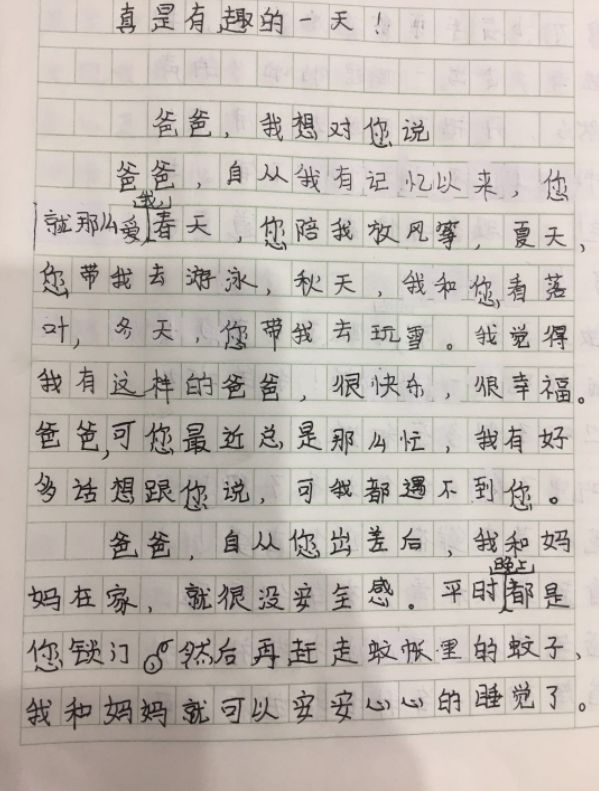 真是有趣的一天！
爸爸，我想对您说
爸爸，自从我有记忆以来，您
就那么爱我，春天，您陪我放风筝，夏天，
您带我去游泳，秋天，我和您看落
叶，冬天，您带我去玩雪。我觉得
我有这样的爸爸，很快乐，很幸福。
爸爸，可您最近总是那么忙，我有好
多话想跟您说，可我都遇不到您。
爸爸，自从您出差后，我和妈
妈在家，就很没安全感。平时晚上都是
您锁门，然后再赶走蚊帐里的蚊子、
我和妈妈就可以安安心心的睡觉了。